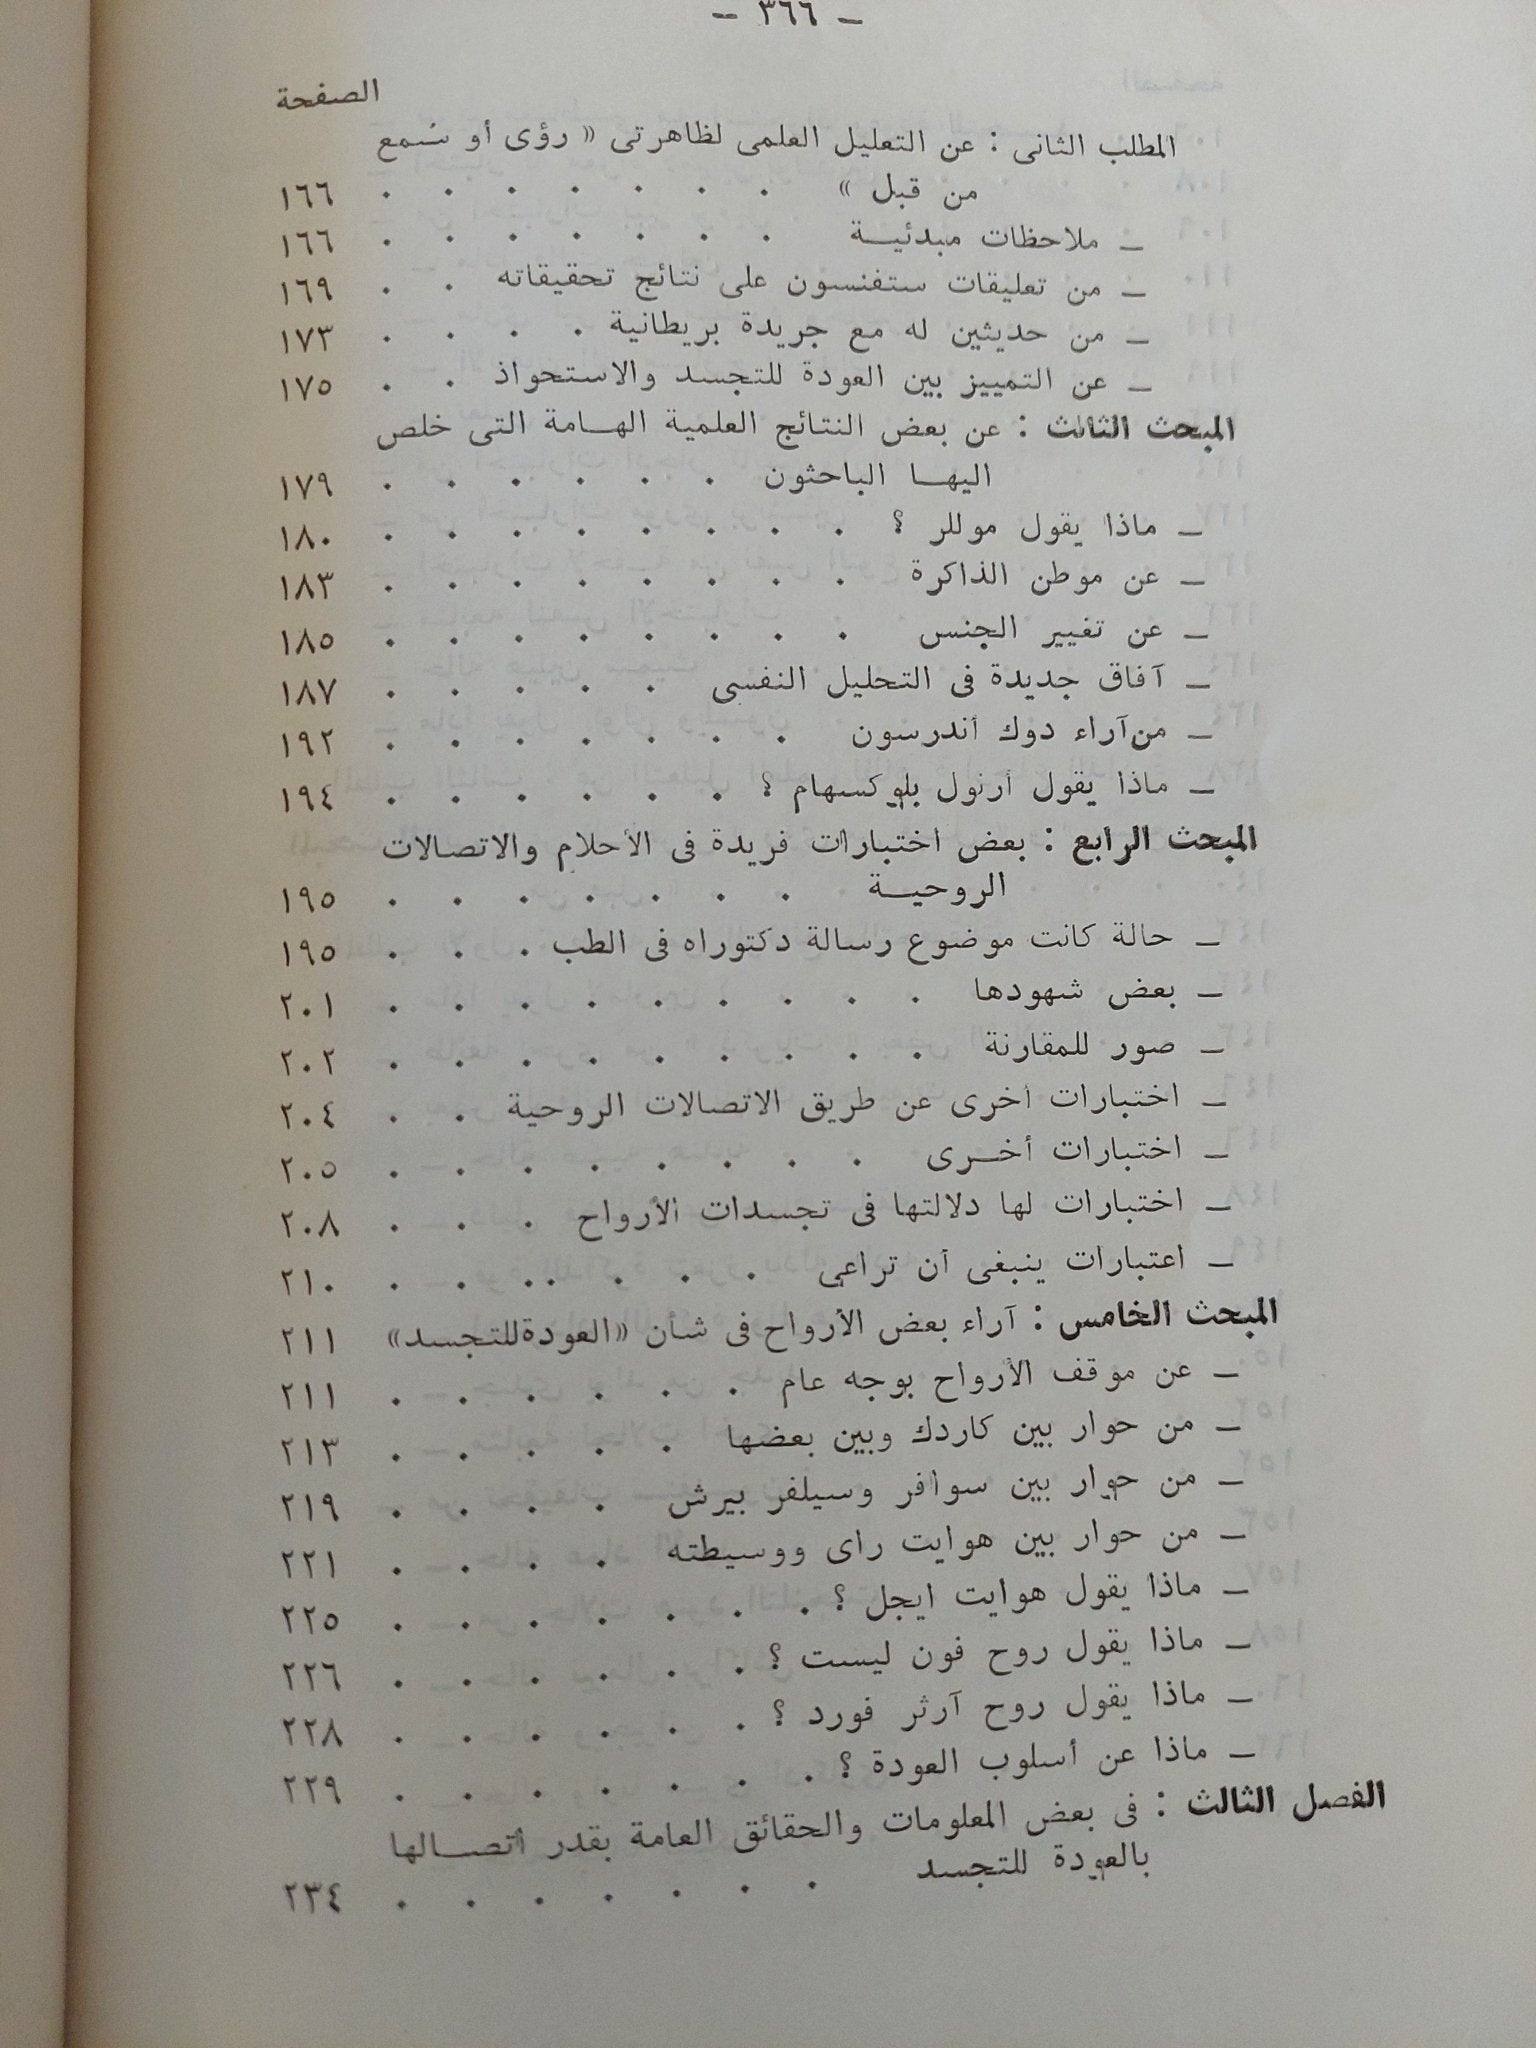 – ٣٦٦ –
الصفحة
المطلب الثانى : عن التعليل العلمى لظاهرتى « رؤى أو سُمع
من قبل » . . . . . . . ١٦٦
– ملاحظات مبدئيـــة . . . . . . . ١٦٦
– من تعليقات ستفنسون على نتائج تحقيقاته . . ١٦٩
– من حديثين له مع جريدة بريطانية . . . . ١٧٣
– عن التمييز بين العودة للتجسد والاستحواذ . . ١٧٥
المبحث الثالث : عن بعض النتائج العلمية الهـــامة التى خلص
اليهـــا الباحثون . . . . . . ١٧٩
– ماذا يقول موللر ؟ . . . . . . . . ١٨٠
– عن موطن الذاكرة . . . . . . . . ١٨٣
– عن تغيير الجنس . . . . . . . . ١٨٥
– آفاق جديدة فى التحليل النفسى . . . . . ١٨٧
– من آراء دوك أندرسون . . . . . . . ١٩٢
– ماذا يقول أرنول بلوكسهام ؟ . . . . . . ١٩٤
المبحث الرابع : بعض اختبارات فريدة فى الأحلام والاتصالات
الروحيـــة . . . . . . . ١٩٥
– حالة كانت موضوع رسالة دكتوراه فى الطب . . . ١٩٥
– بعض شهودها . . . . . . . . . ٢٠١
– صور للمقارنة . . . . . . . . . ٢٠٢
– اختبارات أخرى عن طريق الاتصالات الروحية . . ٢٠٤
– اختبارات أخـــرى . . . . . . . . ٢٠٥
– اختبارات لها دلالتها فى تجسدات الأرواح . . . ٢٠٨
– اعتبارات ينبغى أن تراعى . . . . . . . ٢١٠
المبحث الخامس : آراء بعض الأرواح فى شأن «العودة للتجسد» ٢١١
– عن موقف الأرواح بوجه عام . . . . . . ٢١١
– من حوار بين كاردك وبين بعضها . . . . . ٢١٣
– من حوار بين سوافر وسيلفر بيرش . . . . ٢١٩
– من حوار بين هوايت راى ووسيطته . . . . ٢٢١
– ماذا يقول هوايت ايجل ؟ . . . . . . . ٢٢٥
– ماذا يقول روح فون ليست ؟ . . . . . . ٢٢٦
– ماذا يقول روح آرثر فورد ؟ . . . . . . ٢٢٨
– ماذا عن أسلوب العودة ؟ . . . . . . . ٢٢٩
الفصل الثالث : فى بعض المعلومات والحقائق العامة بقدر اتصـــالها
بالعودة للتجسد . . . . . . . ٢٣٤